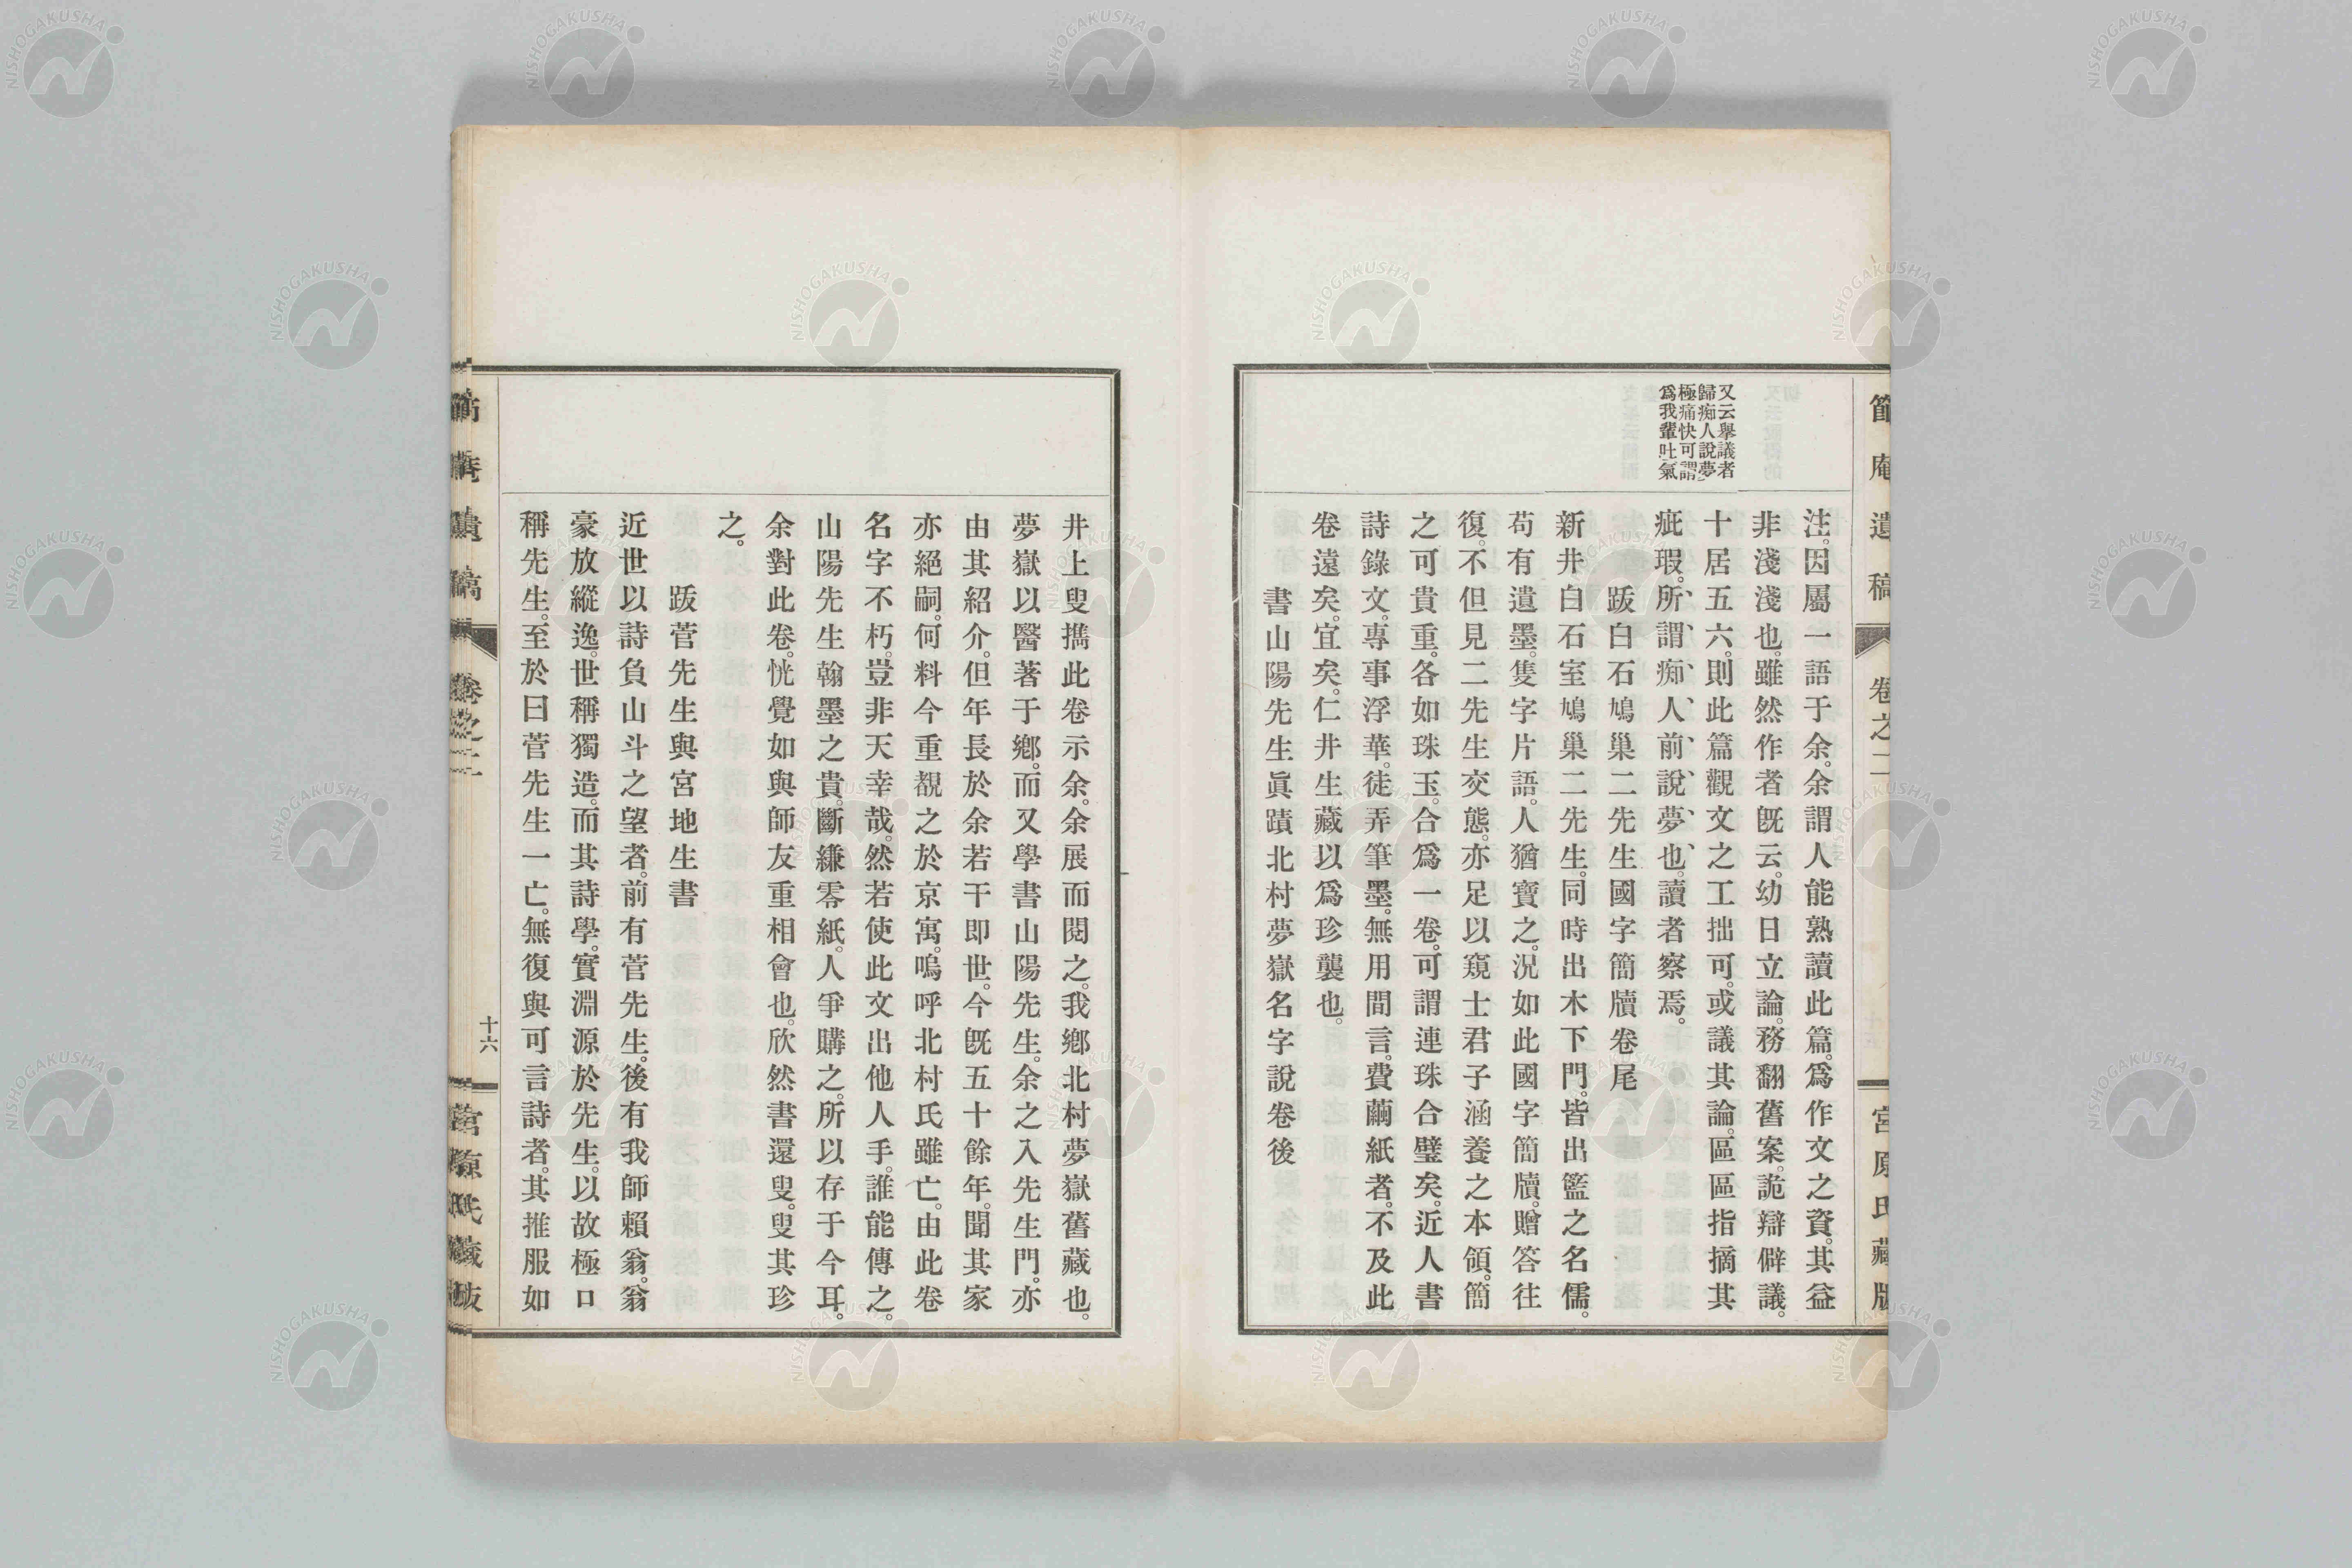 節庵遺稿
卷之二
宮原氏藏版
又云擧議者
歸痴人說夢
極痛快可謂
爲我輩吐氣
注。因屬一語于余。余謂人能熟讀此篇。爲作文之資。其益
非淺淺也。雖然作者旣云。幼日立論。務翻舊案。詭辯僻議。
十居五六。則此篇觀文之工拙可。或議其論。區區指摘其
疵瑕。所、謂、痴、人、前、說、夢、也。讀者察焉。
跋白石鳩巢二先生國字簡牘卷尾
新井白石室鳩巢二先生。同時出木下門。皆出籃之名儒。
苟有遺墨。隻字片語。人猶寶之。況如此國字簡牘。贈答往
復。不但見二先生交態。亦足以窺士君子涵養之本領。簡
之可貴重。各如珠玉。合爲一卷。可謂連珠合璧矣。近人書
詩錄文。專事浮華。徒弄筆墨。無用間言。費繭紙者。不及此
卷遠矣。宜矣。仁井生藏以爲珍襲也。
書山陽先生眞蹟北村夢嶽名字說卷後
井上叟携此卷示余。余展而閱之。我鄕北村夢嶽舊藏也。
夢嶽以醫著于鄕。而又學書山陽先生。余之入先生門。亦
由其紹介。但年長於余若干卽世。今旣五十餘年。聞其家
亦絕嗣。何料今重覩之於京寓。嗚呼北村氏雖亡。由此卷
名字不朽。豈非天幸哉。然若使此文出他人手。誰能傳之。
山陽先生翰墨之貴。斷縑零紙。人爭購之。所以存于今耳。
余對此卷。恍覺如與師友重相會也。欣然書還叟。叟其珍
之。
跋菅先生與宮地生書
近世以詩負山斗之望者。前有菅先生。後有我師賴翁。翁
豪放縱逸。世稱獨造。而其詩學。實淵源於先生。以故極口
稱先生。至於曰菅先生一亡。無復與可言詩者。其推服如
十六